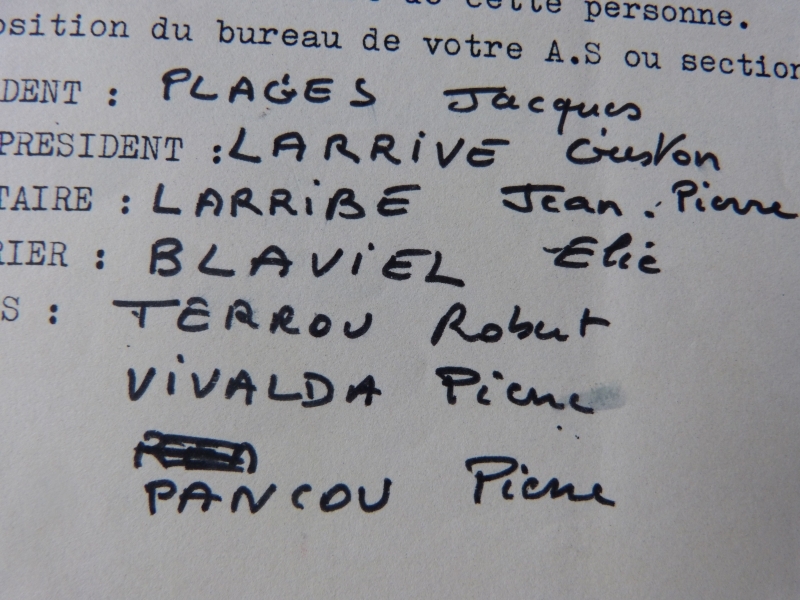 de cette personne.
osition du bureau de votre A.S ou section
DENT : PLAGES Jacques
PRESIDENT : LARRIVE Guston
TAIRE : LARRIBE Jean. Pierre
RIER : BLAVIEL Elie
S : TERROU Robert
VIVALDA Pierre
PANCOU Pierre